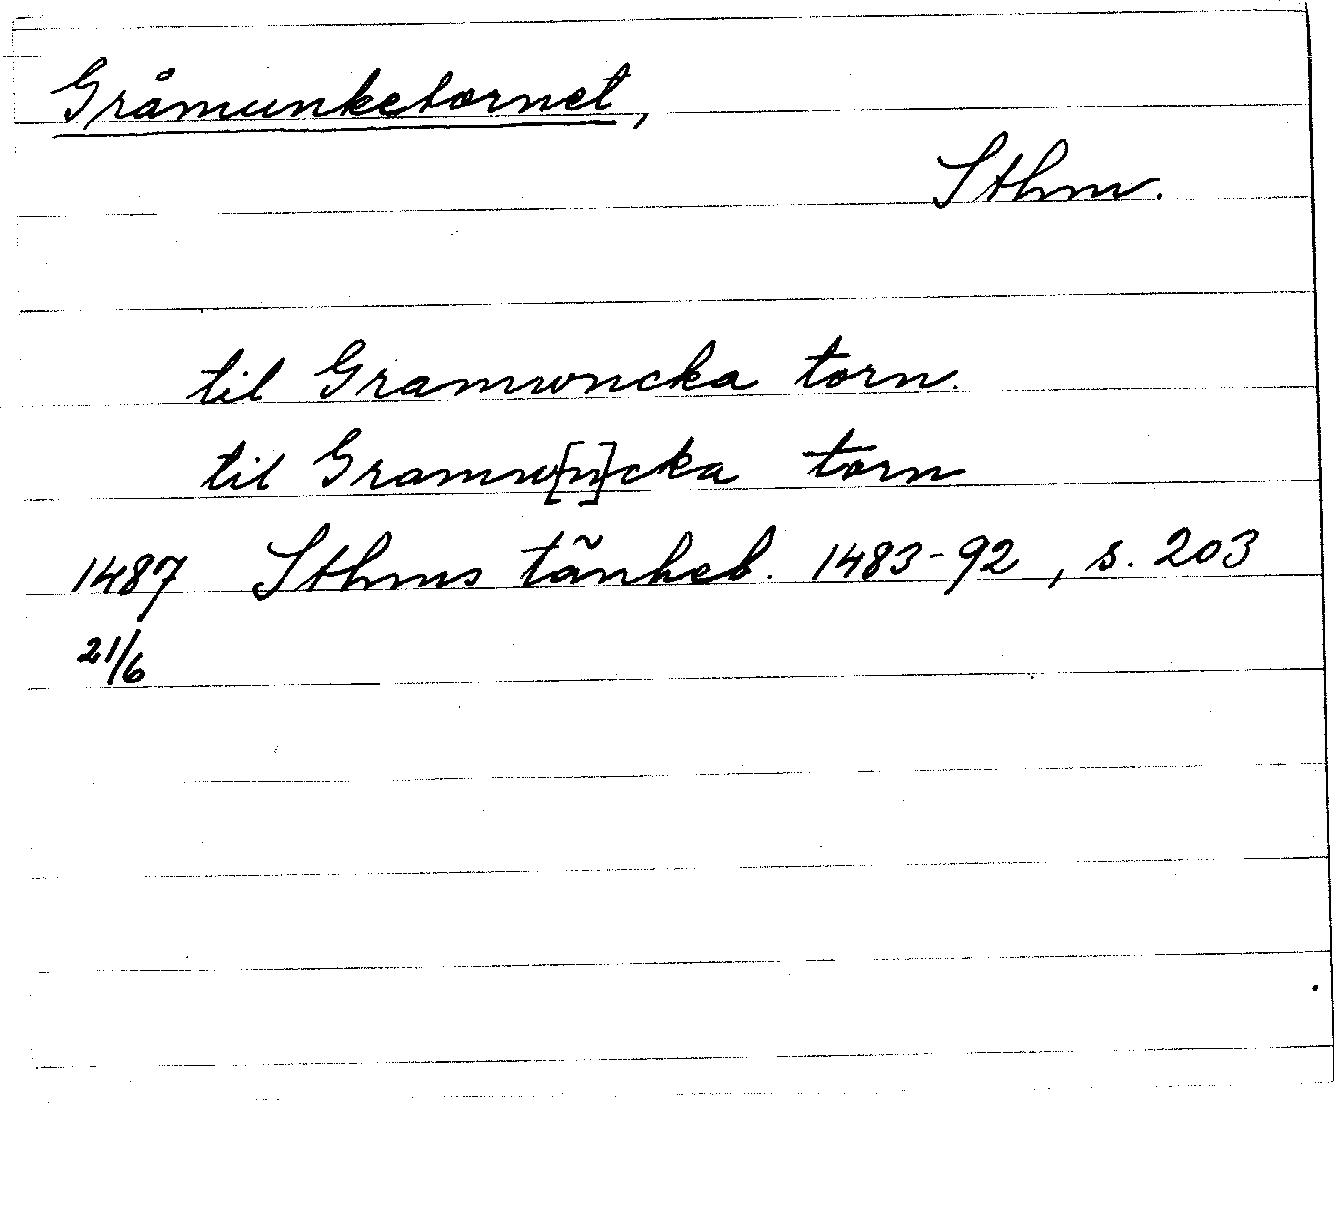 Gråmunketornet,
Sthm.
til Gramwncka torn.
til Gramw[n]cka torn
1487 Sthms tänkeb. 1483-92, s. 203
21/6